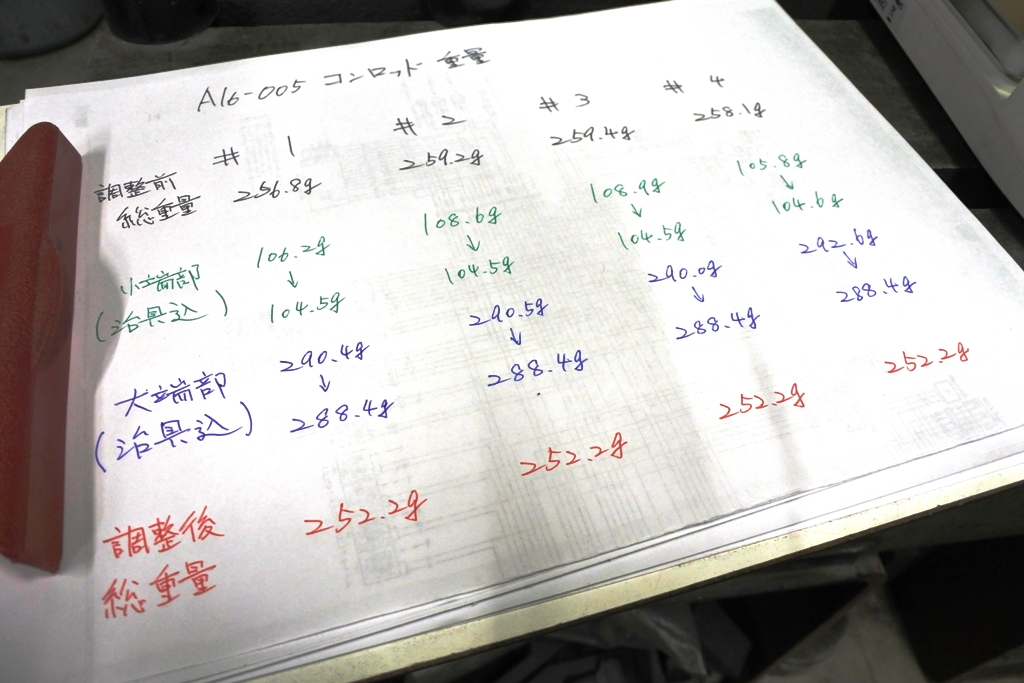 A16-005 コンロット重量
#1 #2 #3 #4
調整前 総重量 256.8g 259.2g 259.4g 258.1g
小端部 (治具込) 106.2g 108.6g 108.9g 105.8g
↓ ↓ ↓ ↓
104.5g 104.5g 104.5g 104.6g
大端部 (治具込) 290.4g 290.5g 290.0g 292.6g
↓ ↓ ↓ ↓
288.4g 288.4g 288.4g 288.4g
調整後 総重量 252.2g 252.2g 252.2g 252.2g